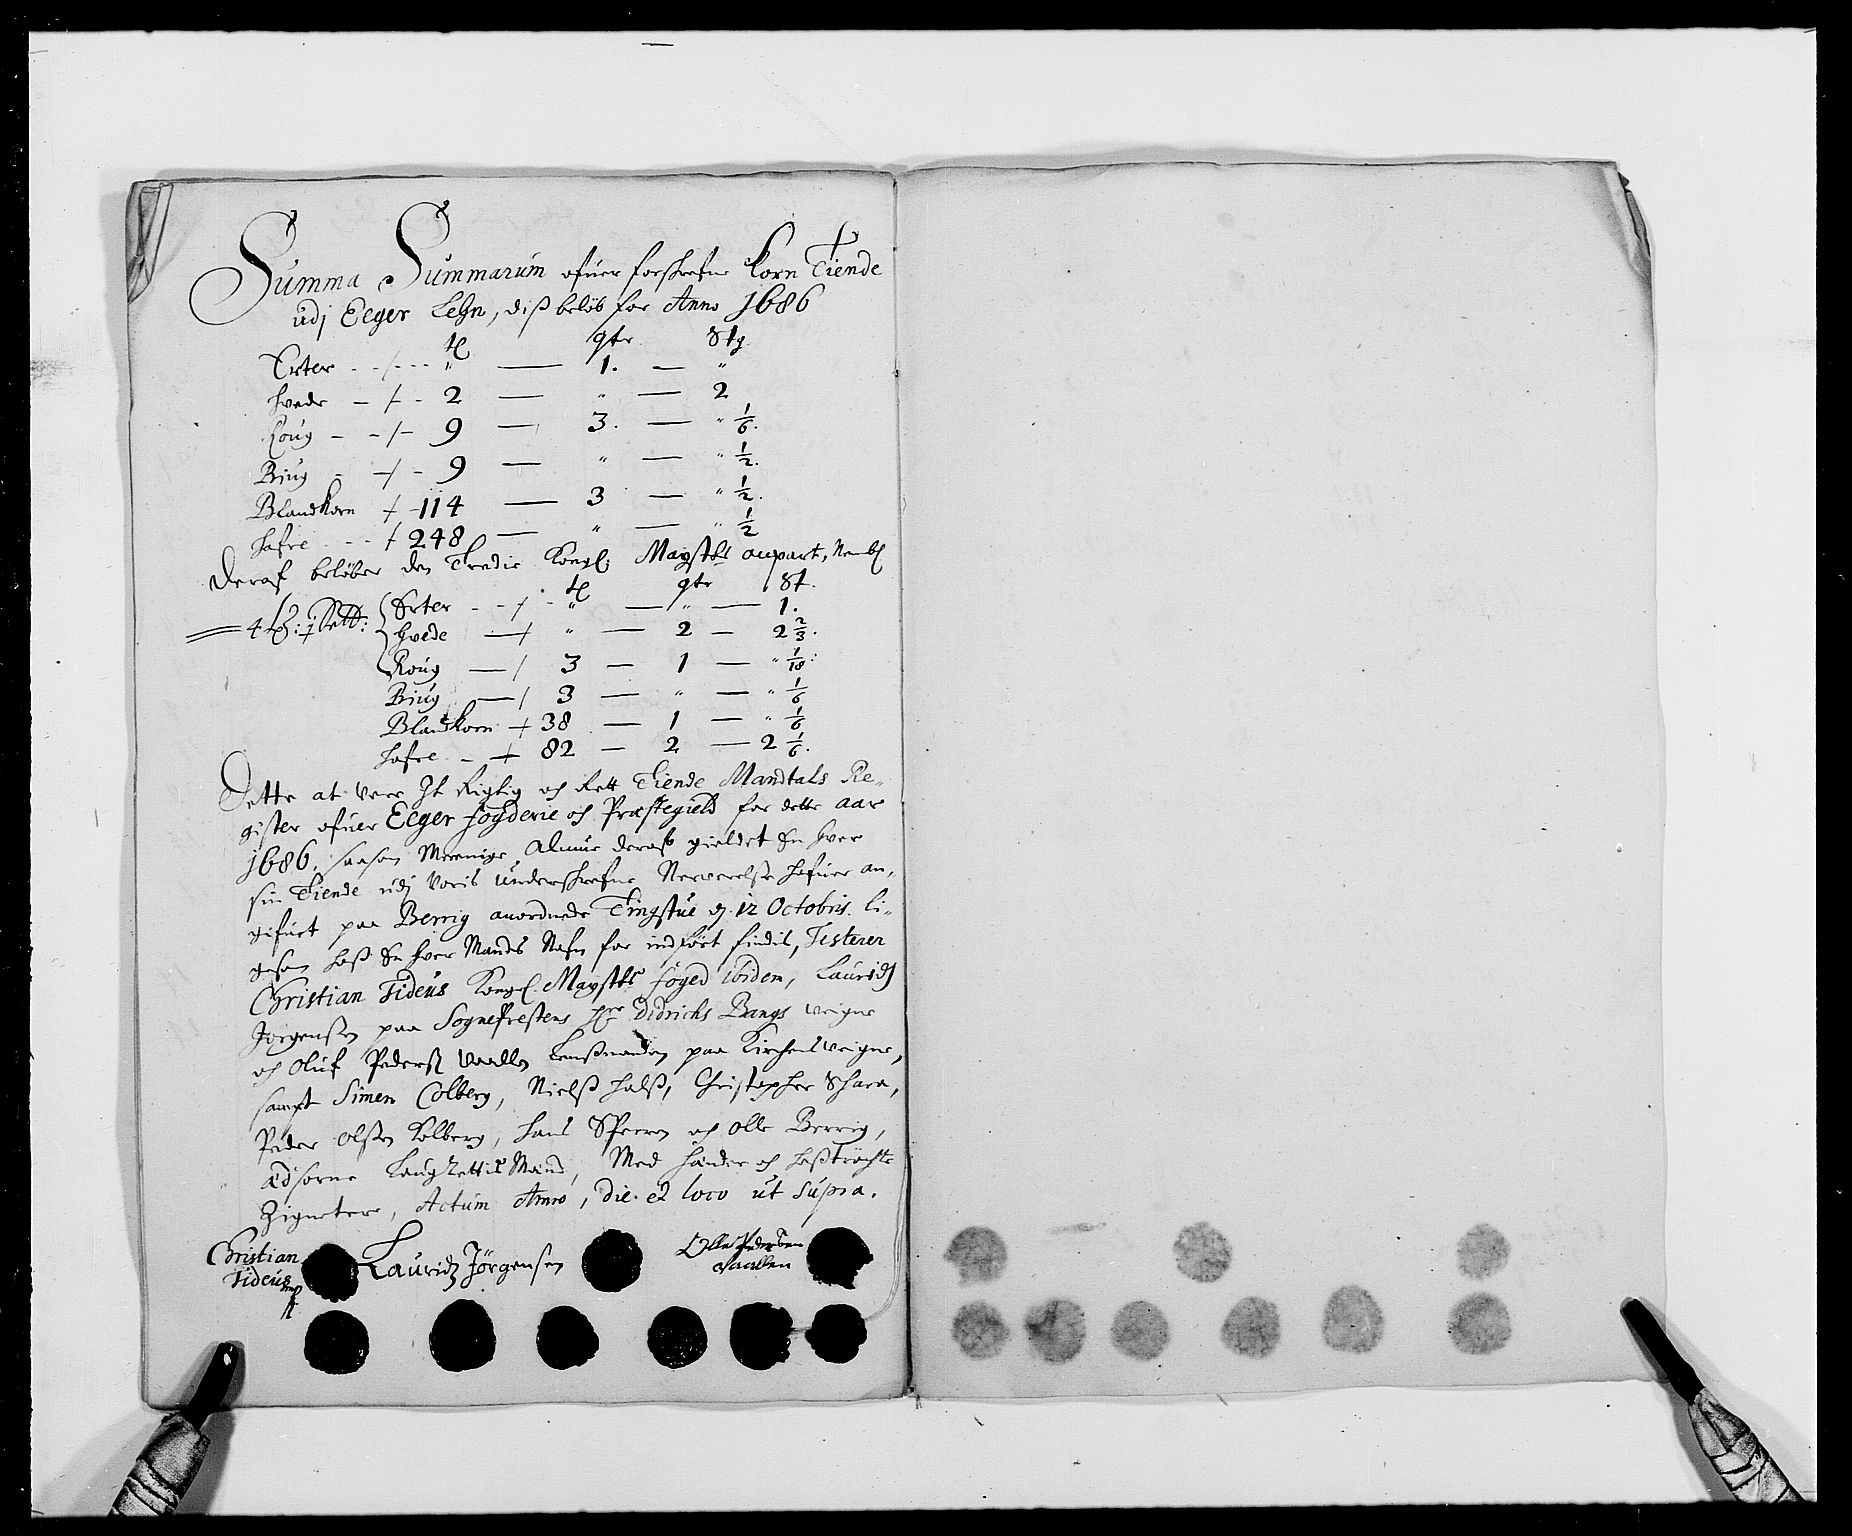 Summa Summarum ofuer forskrefne Korn Tiende
udj Eeger Lehn, diß beløb for Anno 1686
tl qtr Stg
Erter - - / - - - " — 1. — "
Hvede - / - 2 — " — 2
Roug - - / - 9 — 3. — " 1/6.
Biug - / - 9 — " — " 1/2.
Blandkorn / - 114 — 3 — " 1/2.
Hafre - - / 248 — " — " 1/2
Deraf beløber den Tredie Kongl: Maystts anpart, Nembl
tl qtr St.
Erter - - / - " — " — 1.
Hvede — / " — 2 — 2 2/3.
Roug — / 3 — 1 — " 1/18:
Biug — / 3 — " — " 1/6
Blandkorn / 38 — 1 — " 1/6
Hafre - / 82 — 2 — 2 1/6.
Dette at vere It Rigtig och Rett Tiende Mandtals Re-
gister ofuer Eeger fogderie och Præstegield for dette aar
1686, saasom Meenige Almue deraf gieldet En hver
sin Tiende udj Voris underskrefne Nerverelse hafuer an-
gifuet paa Berrig anordnede Tingstue d. 12 Octobris. li-
gesom hoß En hver Mands Nafn for indført findis, Testerer
Christian Fideus Kongl. Maystts foged ibidem, Lauridz
Jørgensen paa Sognefrestens Hr Didrichs Bangs veigne
och Oluf Pederß Vaallen Lenßmanden paa Kirchens veigne,
sampt Simen Colberg, Nielß Halß, Christopher Skara,
Peder Olßen Kolberg, Hans Speren och Olle Berrig,
ædsorne Laugrettis Mend, Med Hænder och hoßtrøchte
Zigneter, Actum Anno, die et loco ut supra.
Christian
Fideus
mp
Lauridz Jørgensen
Olle Pedersen
Vaallen